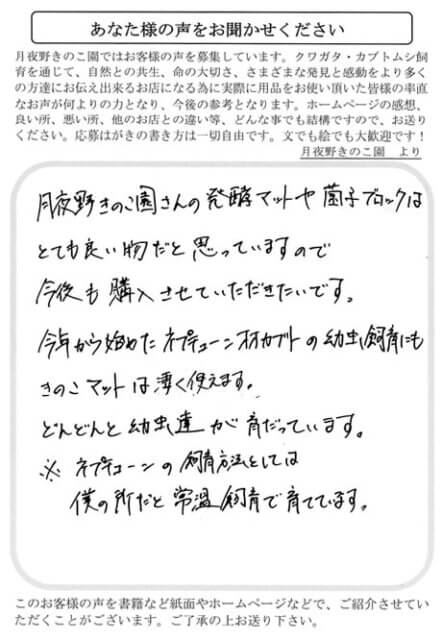 あなた様の声をお聞かせください
月夜野きのこ園ではお客様の声を募集しています。クワガタ・カブトムシ飼
育を通じて、自然との共生、命の大切さ、さまざまな発見と感動をより多く
の方達にお伝え出来るお店になる為に実際に用品をお使い頂いた皆様の率直
なお声が何よりの力となり、今後の参考となります。ホームページの感想、
良い所、悪い所、他のお店との違い等、どんな事でも結構ですので、お送り
ください。応募はがきの書き方は一切自由です。文でも絵でも大歓迎です！
月夜野きのこ園 より
月夜野きのこ園さんの発酵マットや菌子ブロックは
とても良い物だと思っていますので
今後も購入させていただきたいです。
今年から始めたネプチューンオオカブトの幼虫飼育にも
きのこマットは凄く使えます。
どんどんと幼虫達が育だっています。
※ネプチューンの飼育方法としては
僕の所だと常温飼育で育てています。
このお客様の声を書籍など紙面やホームページなどで、ご紹介させてい
ただくことがございます。ご了承の上お送り下さい。